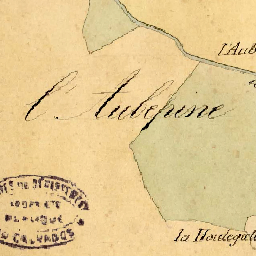 l'Aub
l'Aubepine
PROPRIETE
PUBLIQUE
CALVADOS
la Houlegat